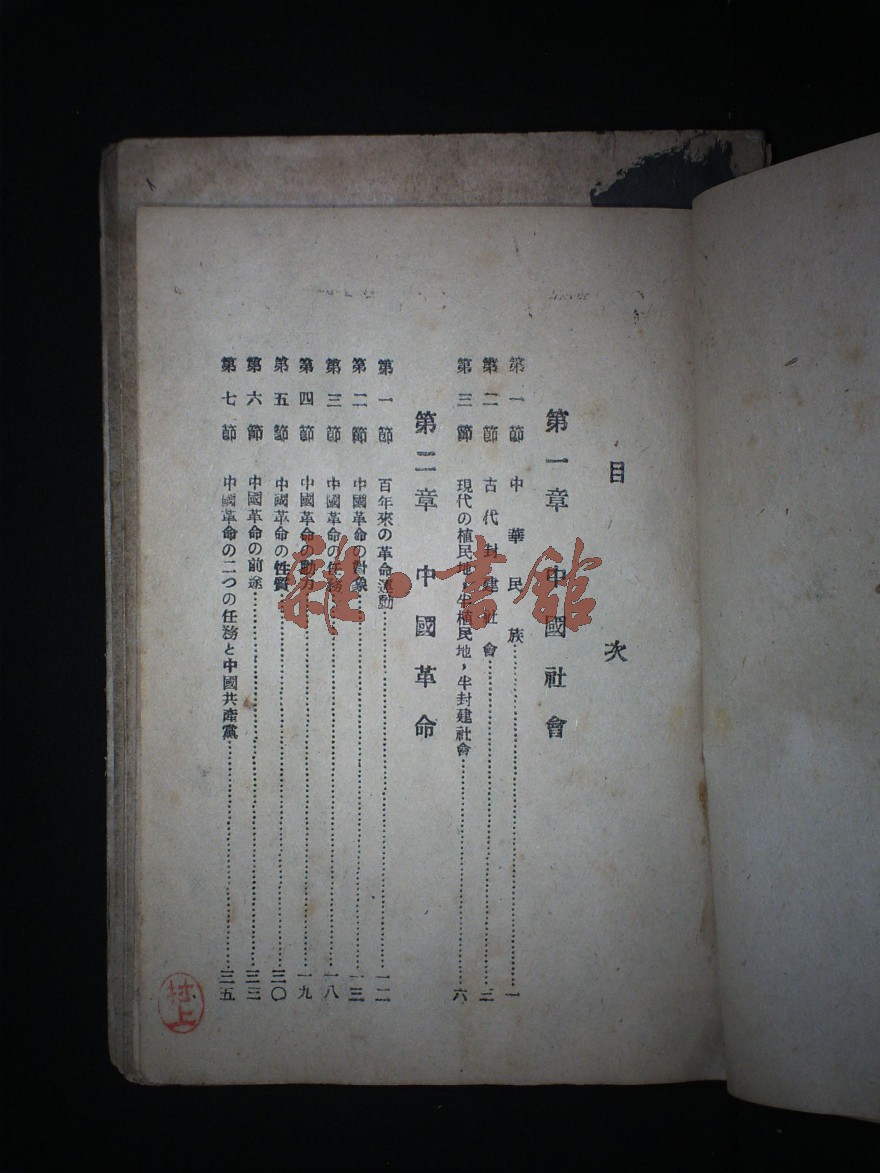 目次
第一章 中國社會
第一節 中華民族……一
第二節 古代封建社會……三
第三節 現代の植民地，半植民地，半封建社會……六
第二章 中國革命
第一節 百年來の革命運動……一二
第二節 中國革命の對象……一三
第三節 中國革命の任務……一八
第四節 中國革命の動力……一九
第五節 中國革命の性質……三〇
第六節 中國革命の前途……三三
第七節 中國革命の二つの任務と中國共產黨……三五
村上
雜·書館